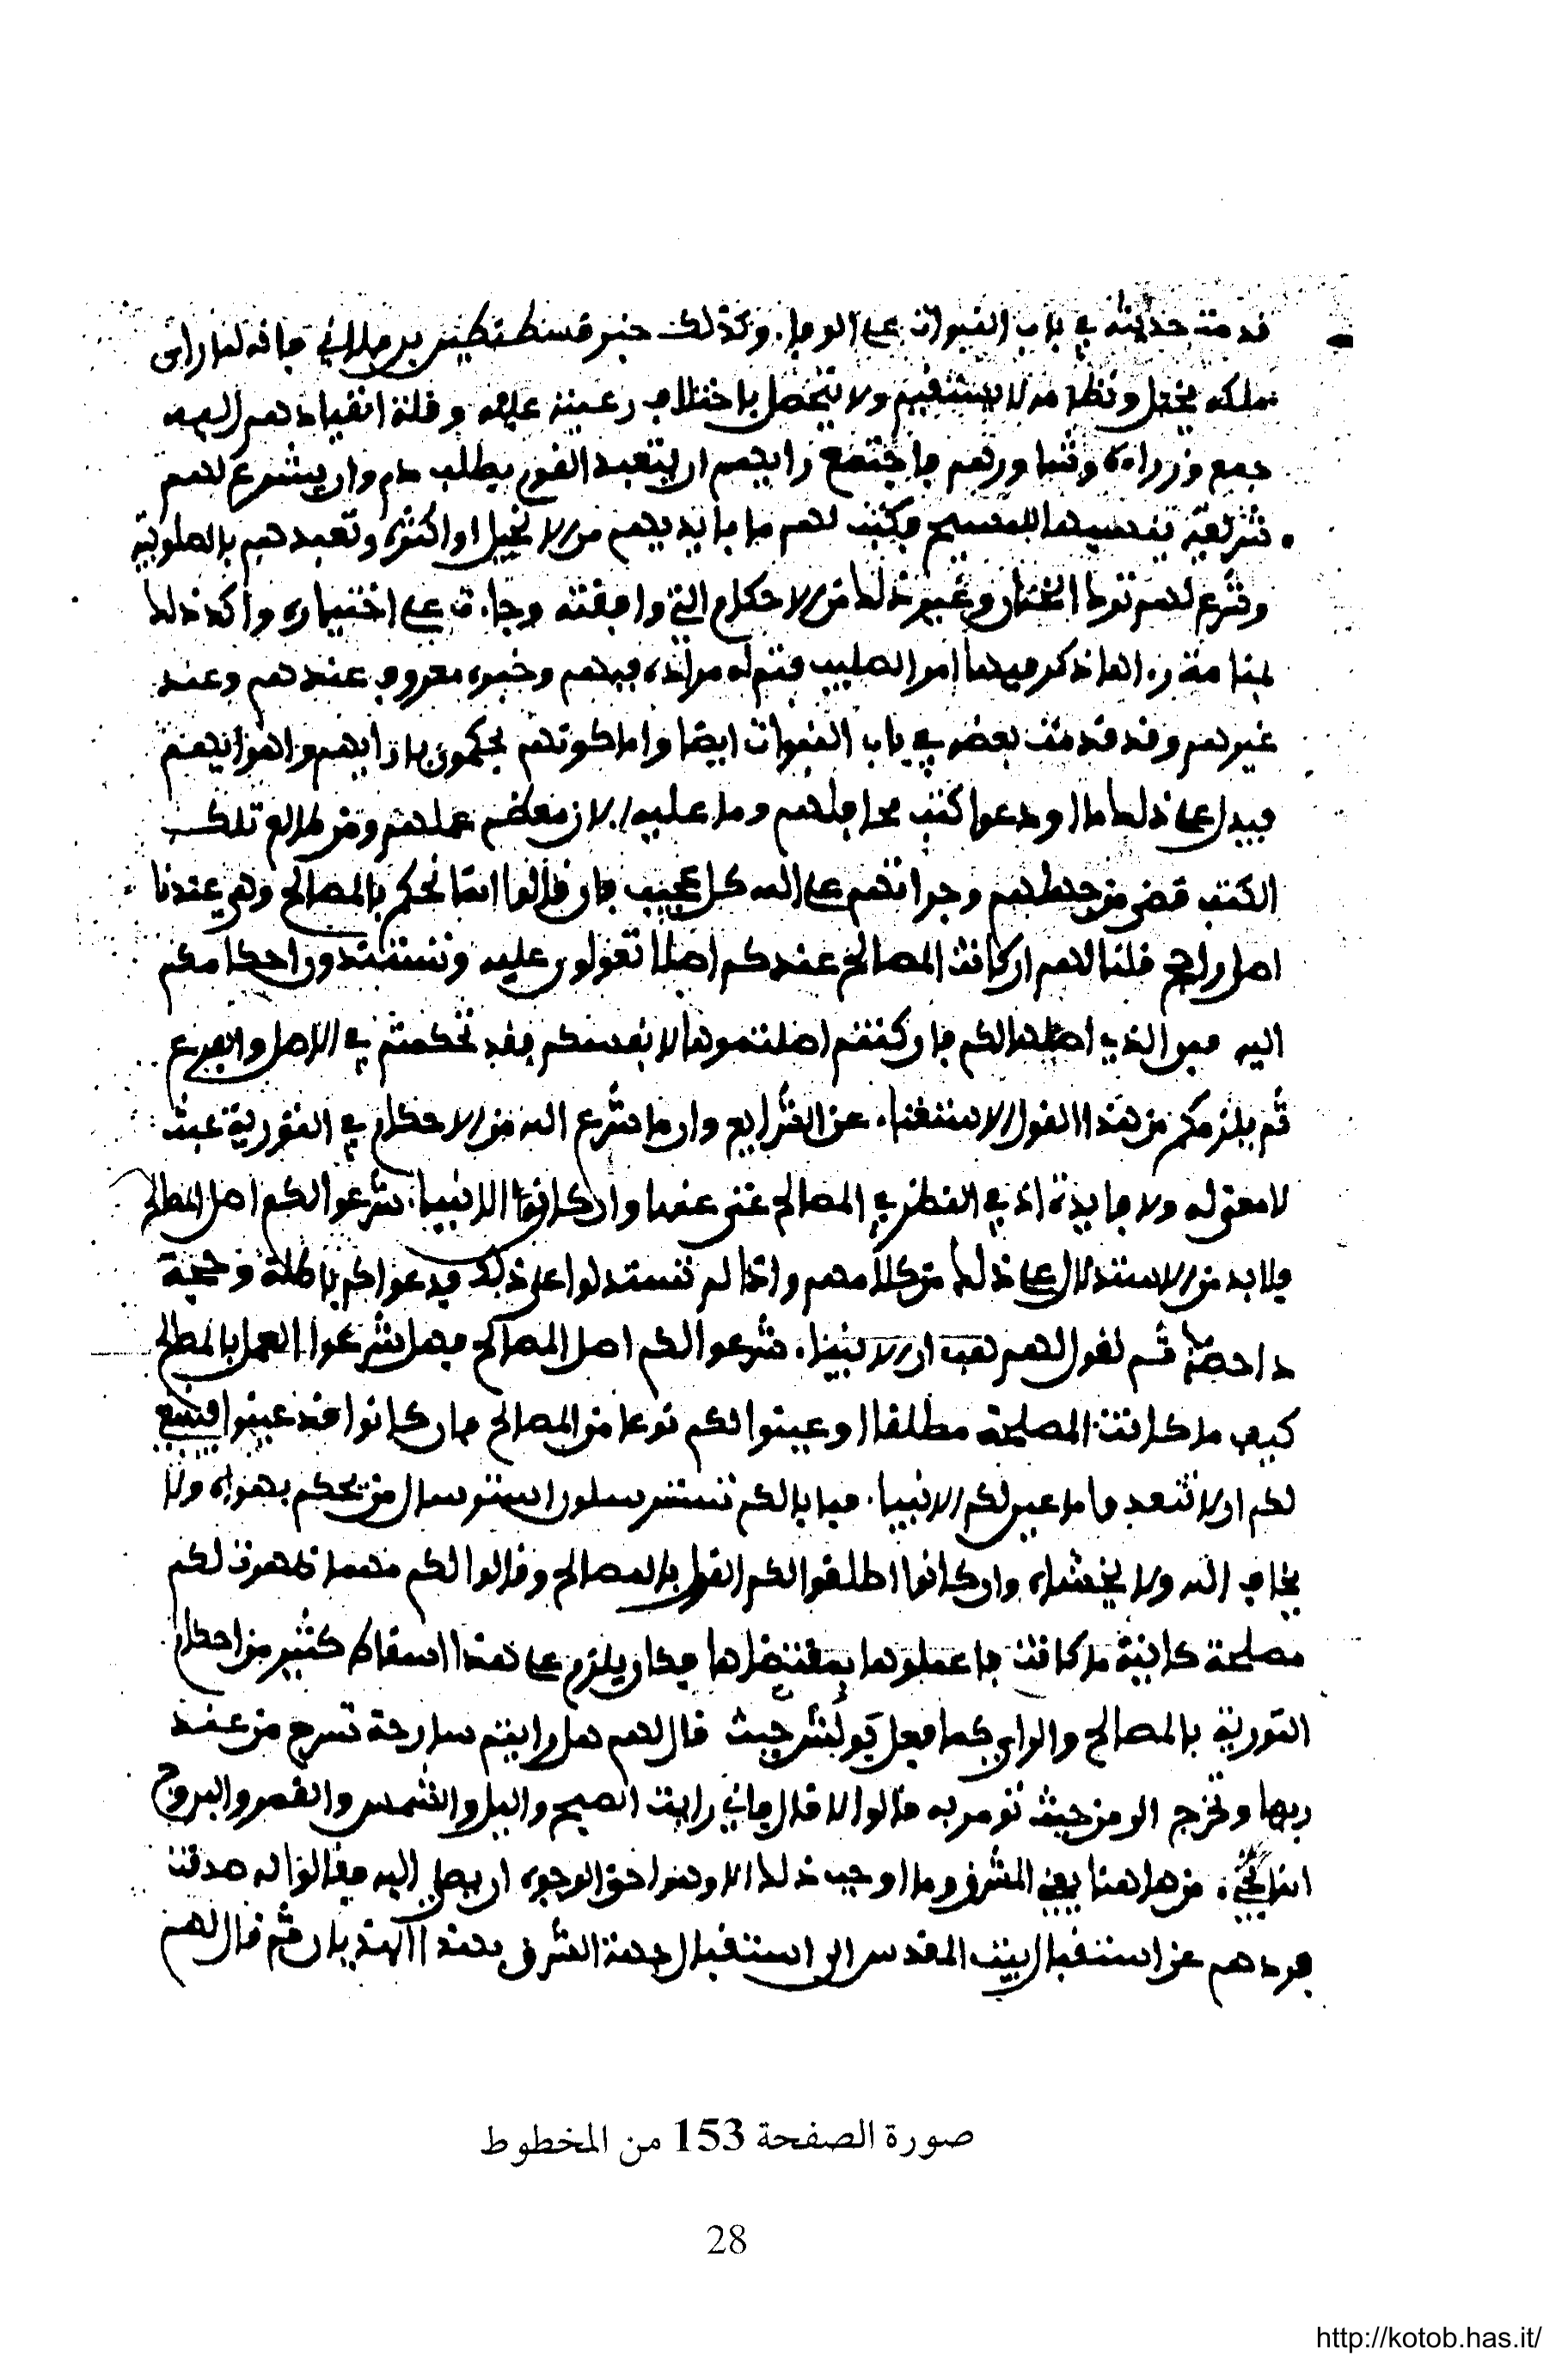 قدمت حديثه في باب النبوات على الوفا. وكذلك خبر قسطنطين بن هلاني فانه لما راى
ملكه يختل ونظامه لا يستقيم ولا يتحصل باختلاف رعيته عليه وقلة انقيادهم اليه
جمع وزراءه وشاورهم فاجتمع رايهم ان يتعبد القوم بطلب دم وان يشرع لهم
شريعة ينسبها للمسيح فكتب لهم ما بايديهم من الانجيل او اكثره وتعبدهم بالصلوبية
وشرع لهم ترك الختان وغير ذلك من الاحكام التي وافقته وجاءت على اختياره واكد ذلك
بمنامة رءاها ذكر فيها امر الصليب فتم له مراده فيهم وخبره معروف عندهم وعند
غيرهم وقد قدمت بعضه في باب النبوات ايضا واما كونهم يحكمون بارايهم واهوائهم
فيدل على ذلك ما اودعوا كتب محافلهم وما عليه الان معظم عملهم ومن طالع تلك
الكتب قضى من جهلهم وجراتهم على الله كل عجيب فان قالوا انما نحكم بالمصالح وهي عندنا
اصل راجح قلنا لهم ان كانت المصالح عندكم اصلا تعولون عليه وتستندون احكامكم
اليه فمن الذي اصلها لكم فان كنتم اصلتموها لانفسكم فقد تحكمتم في الاصل والفرع
ثم يلزمكم من هذا القول الاستغناء عن الشرايع وان ما شرع الله من الاحكام في التورية عبث
لا معنى له ولا فايدة اذ في النظر في المصالح غنى عنها وان كانوا الانبيا. شرعوا لكم اصل المصالح
فلا بد من الاستدلال على ذلك من كلامهم واذا لم تستدلوا على ذلك فدعواكم باطلة وحجتة
داحضة ثم نقول لهم هب ان الانبيا. شرعوا لكم اصل المصالح فهل شرعوا العمل بالمصالح
كيف ما كانت المصلحة مطلقا او عينوا لكم نوعا من المصالح فان كانوا قد عينوا فينبغي
لكم ان لا تتعدوا ما عين لكم الانبيا. فما بالكم تسترسلون استرسال من يحكم بهواه ولا
يخاف الله ولا يخشاه وان كانوا اطلقوا لكم القول بالمصالح وقالوا لكم مهما ظهرت لكم
مصلحة كاينة ما كانت فاعملوا بمقتضاها فكان يلزم على هذا اسقاط كثير من احكام
التورية بالمصالح والراي كما فعل بولش حيث قال لهم هل رايتم سارحة تسرح من عند
ربها وتخرج الا من حيث تومر به قالوا لا قال فاني رايت الصبح والليل والشمس والقمر والبروج
انما تجيء من هاهنا يعني المشرق وما اوجب ذلك الا وهو احق الوجوه ان يصلى اليه فقالوا له صدقت
فردهم عن استقبال بيت المقدس الى استقبال جهة الشرق بهذا الهذيان ثم قال لهم
صورة الصفحة 153 من المخطوط
28
http://kotob.has.it/